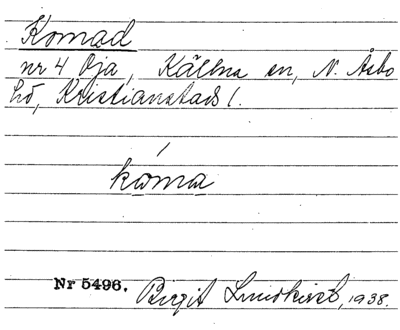 Komad
nr 4 Öja, Källna sn, N. Åsbo
hd, Kristianstads l.
koma
Nr 5496. Birgit Lundkvist, 1938.